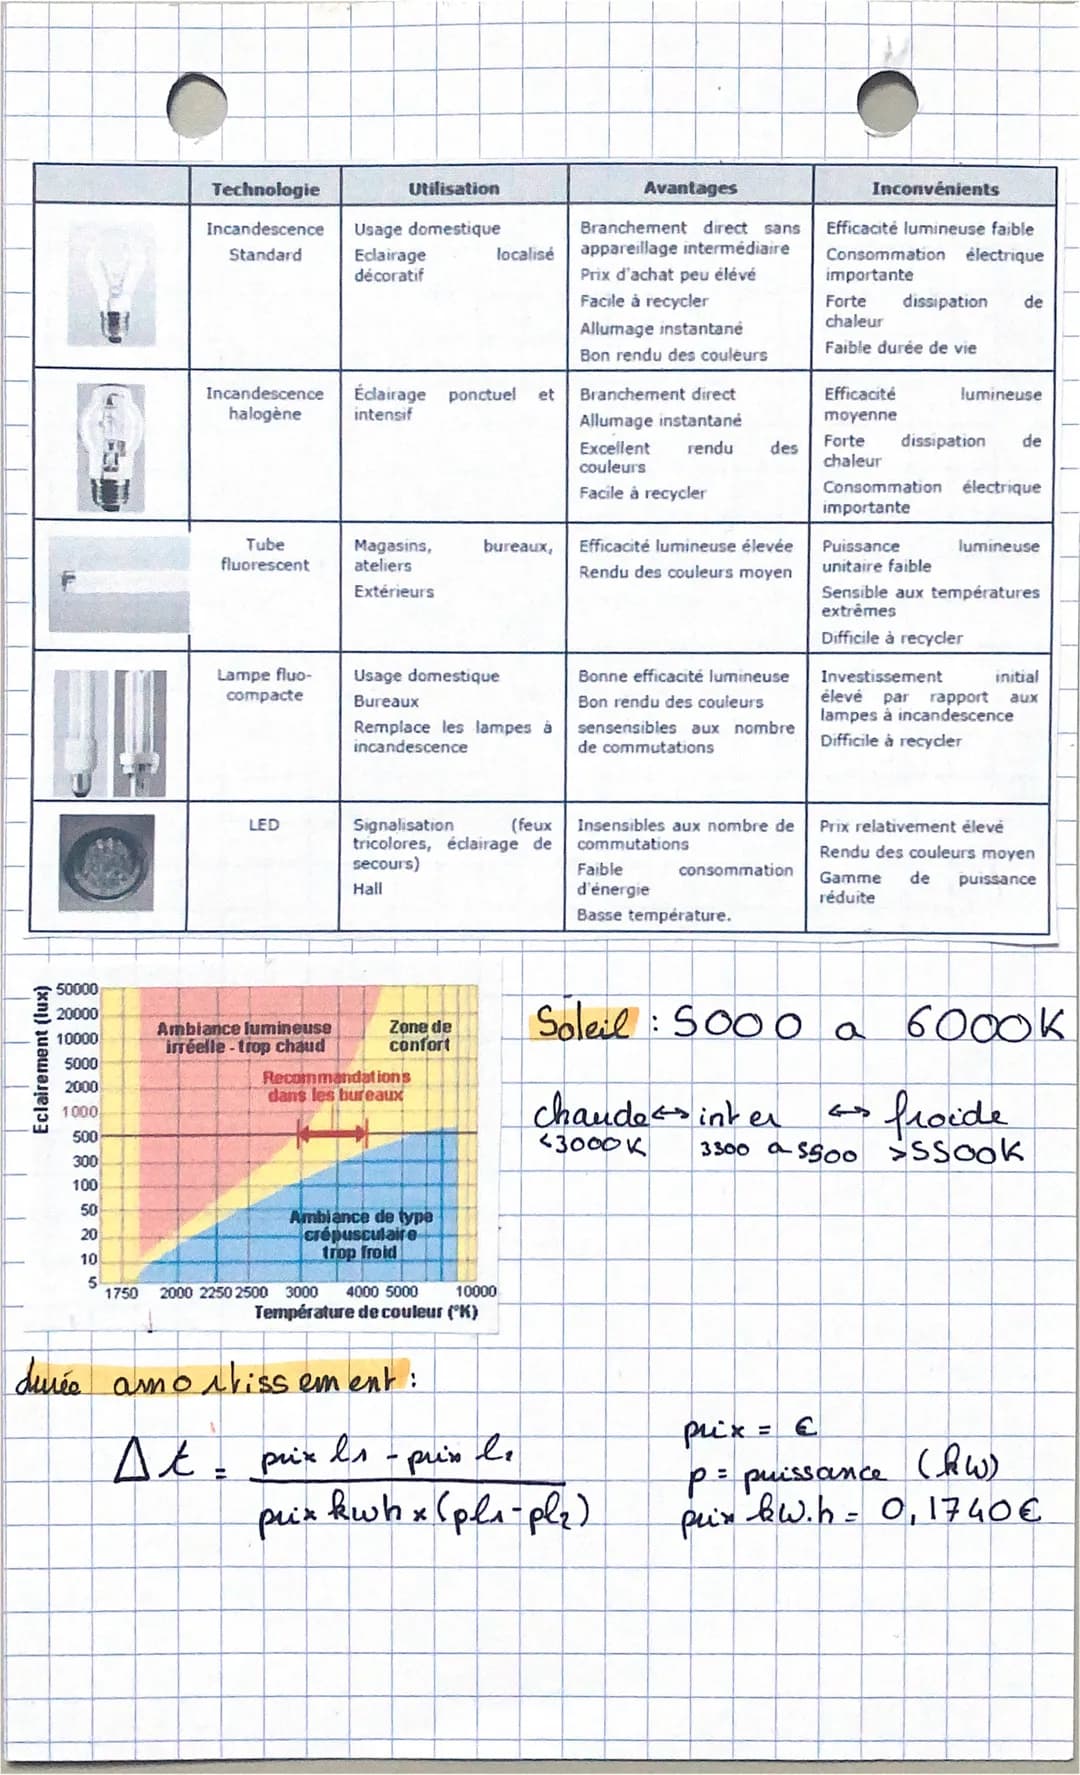 Technologie Utilisation Avantages Inconvénients
Incandescence
Standard
Usage domestique
Eclairage localisé
décoratif
Branchement direct sans
appareillage intermédiaire
Prix d'achat peu élévé
Facile à recycler
Allumage instantané
Bon rendu des couleurs
Efficacité lumineuse faible
Consommation électrique
importante
Forte dissipation de
chaleur
Faible durée de vie
Incandescence
halogène
Éclairage ponctuel et
intensif
Branchement direct
Allumage instantané
Excellent rendu des
couleurs
Facile à recycler
Efficacité lumineuse
moyenne
Forte dissipation de
chaleur
Consommation électrique
importante
Tube
fluorescent
Magasins, bureaux,
ateliers
Extérieurs
Efficacité lumineuse élevée
Rendu des couleurs moyen
Puissance lumineuse
unitaire faible
Sensible aux températures
extrêmes
Difficile à recycler
Lampe fluo-
compacte
Usage domestique
Bureaux
Remplace les lampes à
incandescence
Bonne efficacité lumineuse
Bon rendu des couleurs
sensensibles aux nombre
de commutations
Investissement initial
élevé par rapport aux
lampes à incandescence
Difficile à recycler
LED
Signalisation (feux
tricolores, éclairage de
secours)
Hall
Insensibles aux nombre de
commutations
Faible consommation
d'énergie
Basse température.
Prix relativement élevé
Rendu des couleurs moyen
Gamme de puissance
réduite
Eclairement (lux)
50000
20000
10000
5000
2000
1000
500
300
100
50
20
10
5
Ambiance lumineuse
irréelle - trop chaud
Zone de
confort
Recommandations
dans les bureaux
Ambiance de type
crépusculaire
trop froid
1750 2000 2250 2500 3000 4000 5000 10000
Température de couleur (°K)
Soleil : 5000 a 6000K
chaude ↔ inter ↔ froide
<3000K 3300 a 5500 >5500K
durée amortissement :
Δt = prix l1 - prix l2
prix kwh x (pl1-pl2)
prix = €
p = puissance (kW)
prix kW.h = 0,1740€